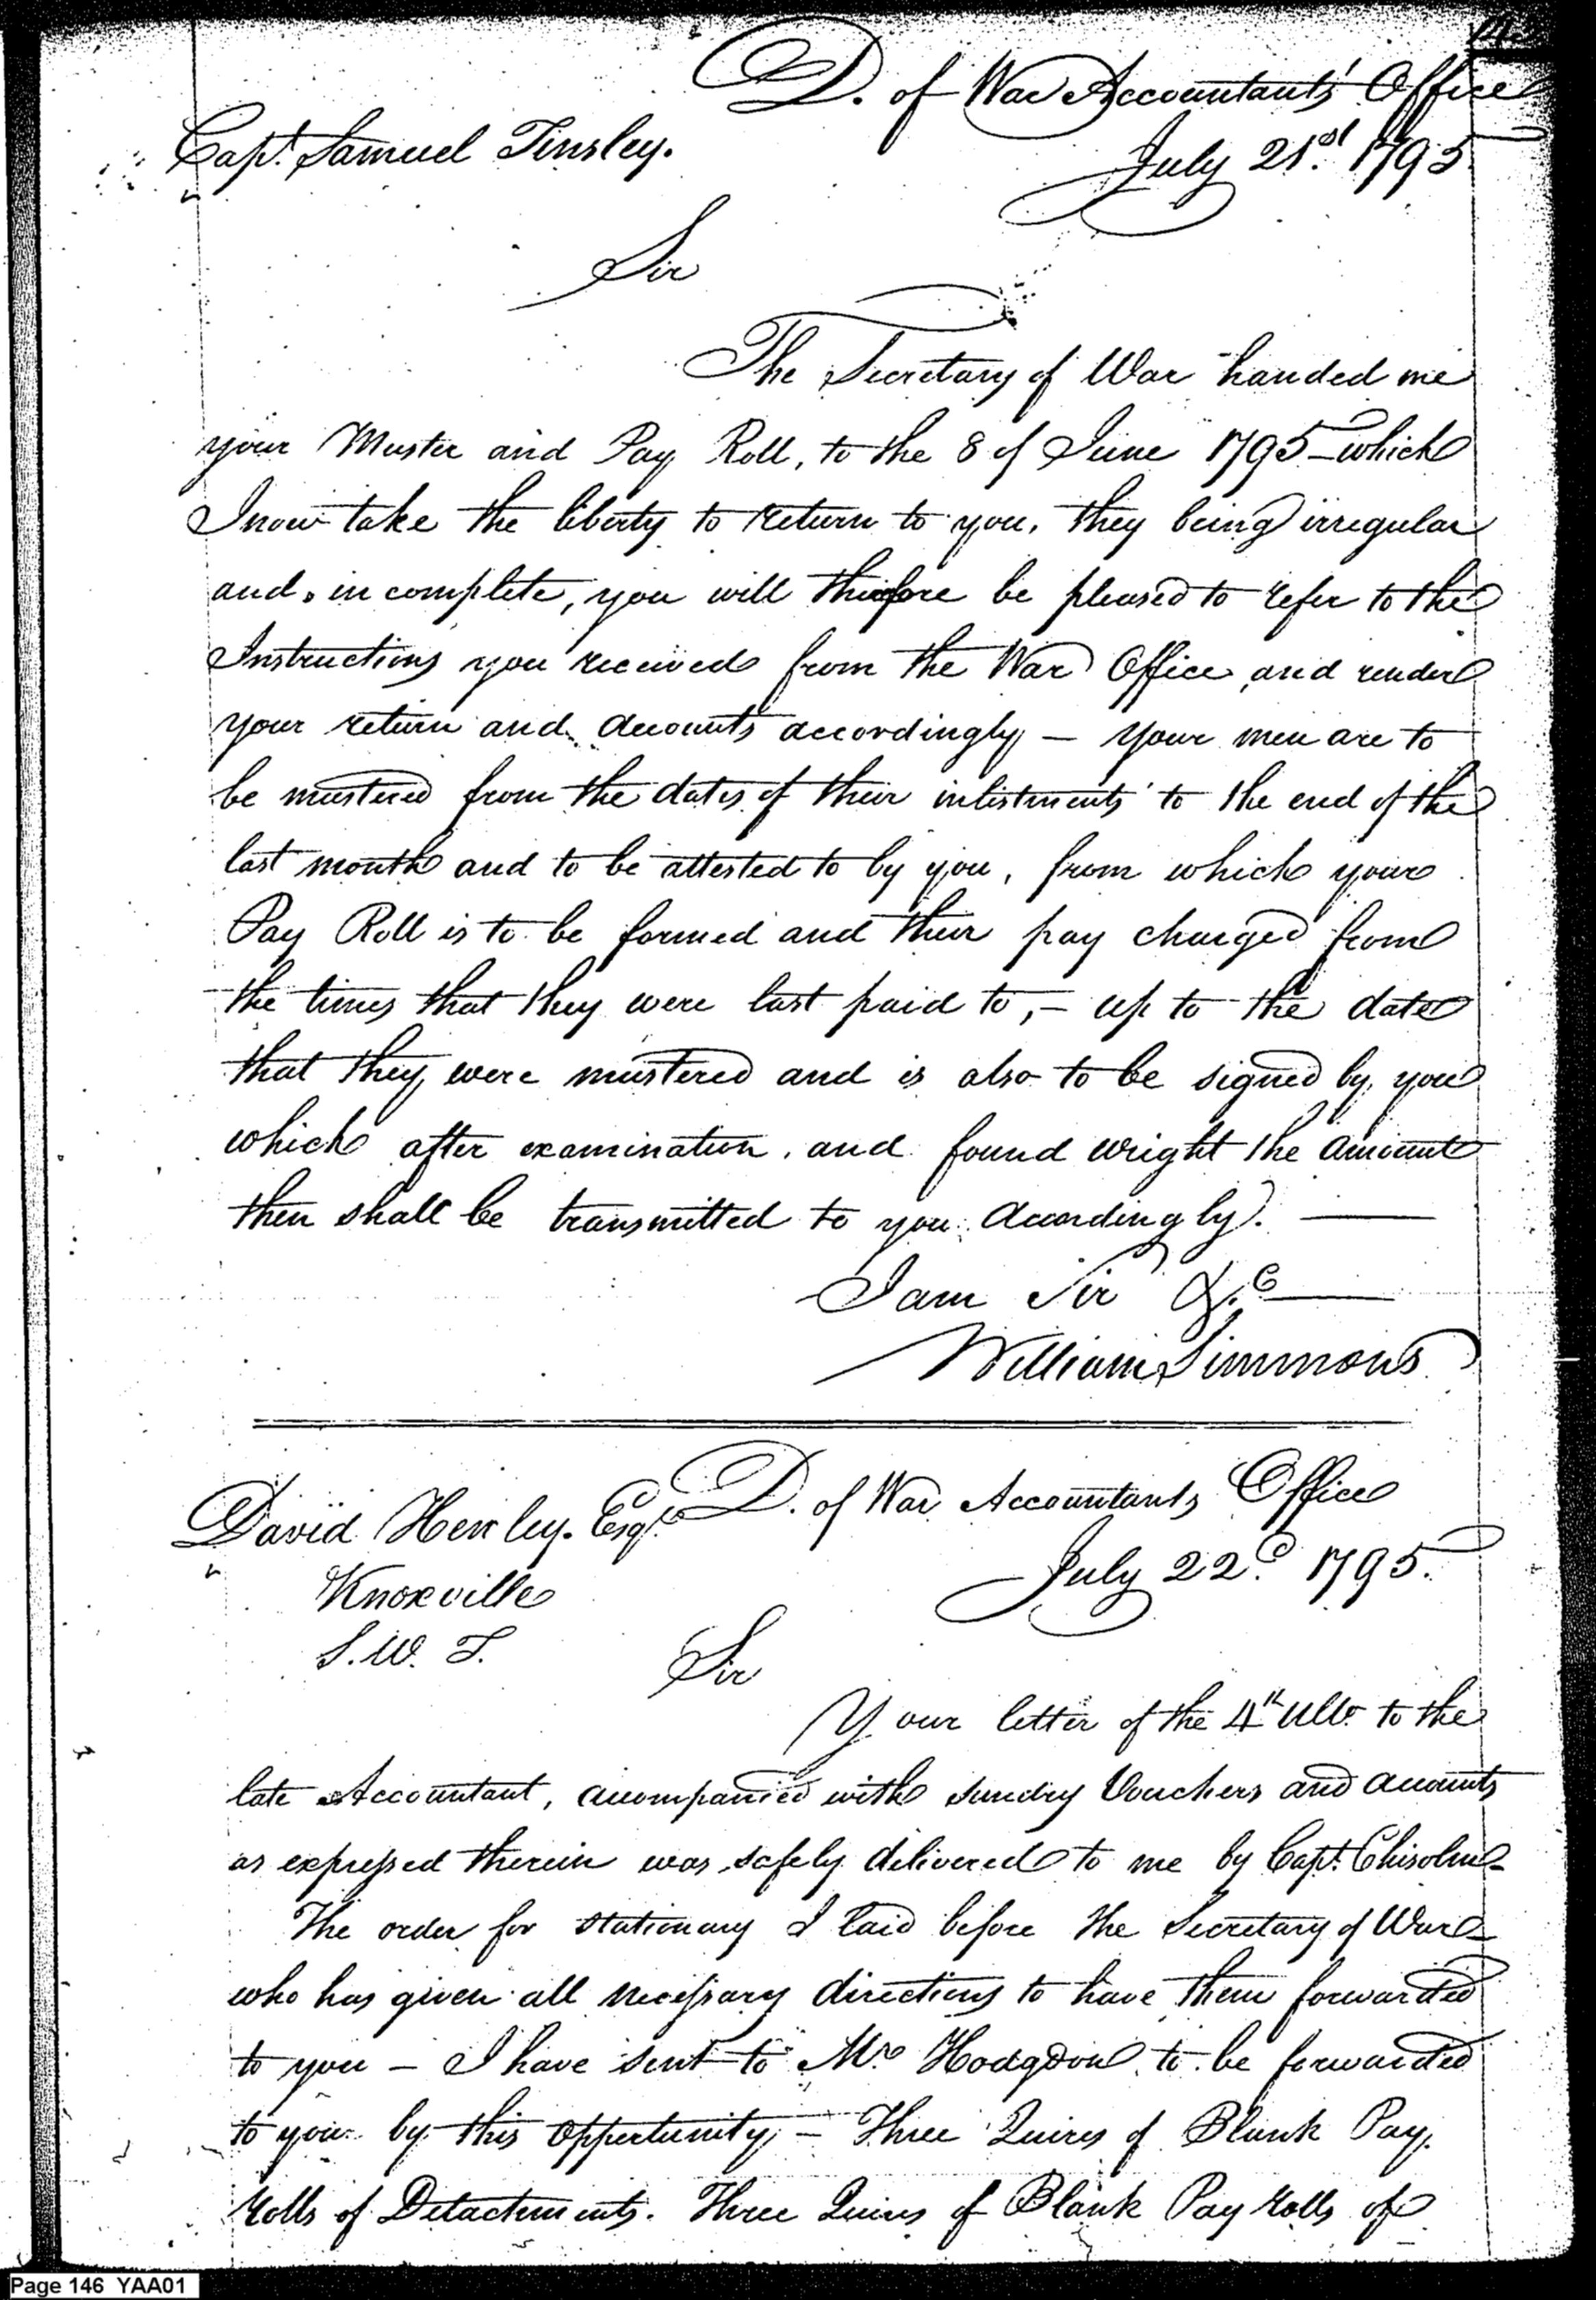 D. of War Accountants' Office
Capt. Samuel Tinsley.
July 21st. 1795
Sir
The Secretary of War handed me
your Muster and Pay Roll, to the 8 of June 1795 – which
I now take the liberty to return to you, they being irregular
and incomplete, you will therefore be pleased to refer to the
Instructions you received from the War Office and render
your return and accounts accordingly – your men are to
be mustered from the dates of their inlistments to the end of the
last month and to be attested to by you, from which your
Pay Roll is to be formed and their pay charged from
the times that they were last paid to, – up to the date
that they were mustered and is also to be signed by you
which after examination, and found wright the amount
then shall be transmitted to you accordingly. —
I am Sir &c —
William Simmons
David Henley. Esqr. D. of War Accountants Office
July 22d. 1795.
Knoxville
S. W. T.
Sir
Your letter of the 4th Ulto. to the
late Accountant, accompanied with sundry Vouchers and accounts
as expressed therein was safely delivered to me by Capt. Chisolm –
The order for stationary I laid before the Secretary of War –
who has given all necessary directions to have them forwarded
to you – I have sent to Mr. Hodgdon to be forwarded
to you by this oppertunity, – Three Quires of Blank Pay
rolls of Detachements. Three Quires of Blank Pay rolls of
Page 146 YAA01